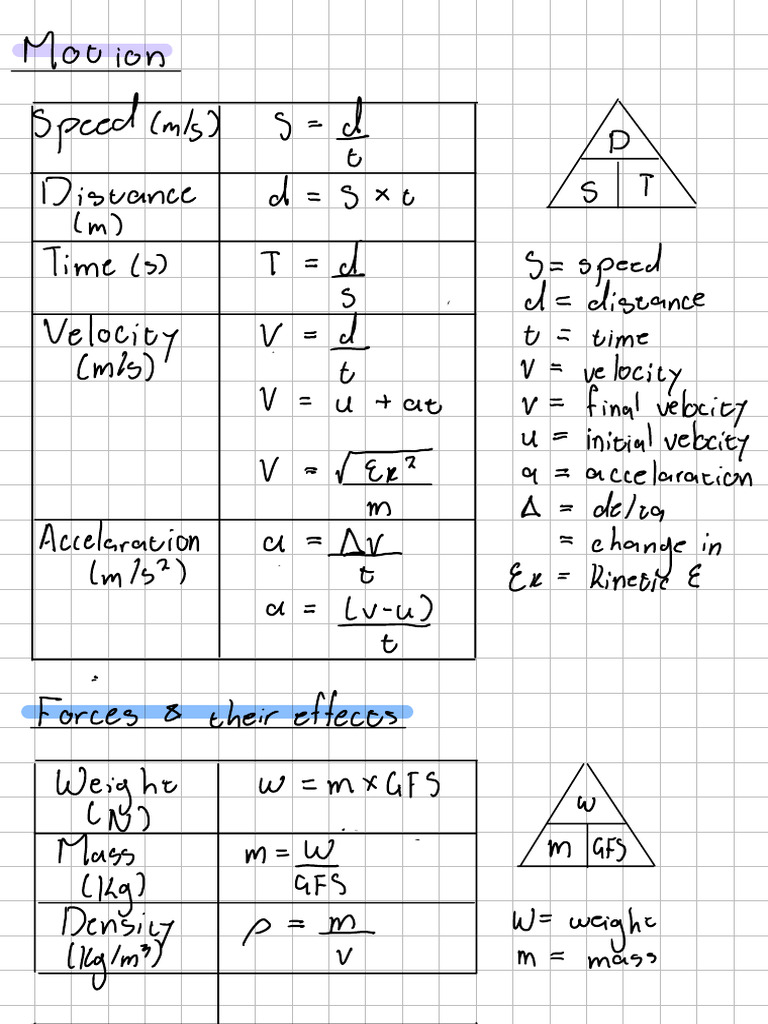 Motion
Speed (m/s)
S = d/t
Distance
(m)
d = S × t
Time (s)
T = d/s
Velocity
(m/s)
V = d/t
V = u + at
V = √Ek²/m
Accelaration
(m/s²)
a = Δv/t
a = (v-u)/t
D
S T
S = speed
d = distance
t = time
V = velocity
V = final velocity
u = initial velocity
a = accelaration
Δ = delta
= change in
Ek = Kinetic E
Forces & their effects
Weight
(N)
W = m × GFS
Mass
(Kg)
m = W/GFS
Density
(Kg/m³)
ρ = m/v
W
m GFS
W = weight
m = mass